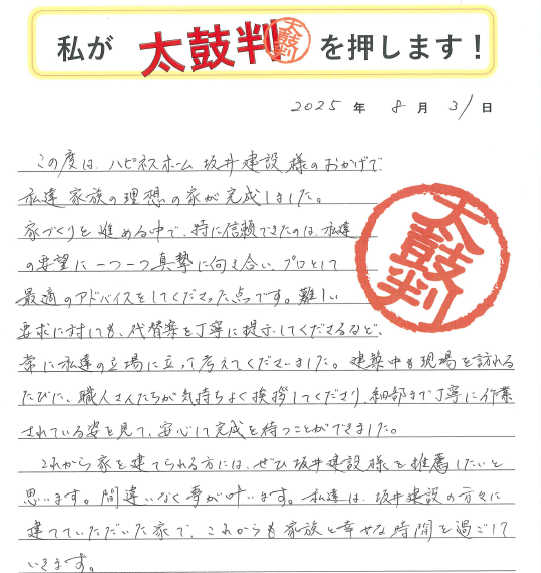 私が 太鼓判 太鼓判 を押します!
2025 年 8 月 31 日
この度は、ハピネスホーム 坂井建設様のおかげで、
私達家族の理想の家が完成しました。
家づくりを進める中で、特に信頼できたのは、私達
の要望に一つ一つ真摯に向き合い、プロとして
最適のアドバイスをしてくださった点です。難しい
要求に対しても、代替案を丁寧に提示してくださるなど、
常に私達の立場に立って考えてくださいました。建築中も現場を訪れる
たびに、職人さんたちが気持ちよく挨拶してくださり、細部まで丁寧に作業
されている姿を見て、安心して完成を待つことができました。
これから家を建てられる方には、ぜひ坂井建設様を推薦したいと
思います。間違いなく夢が叶います。私達は、坂井建設の方々に
建てていただいた家で、これからも家族と幸せな時間を過ごして
いきます。
太鼓判